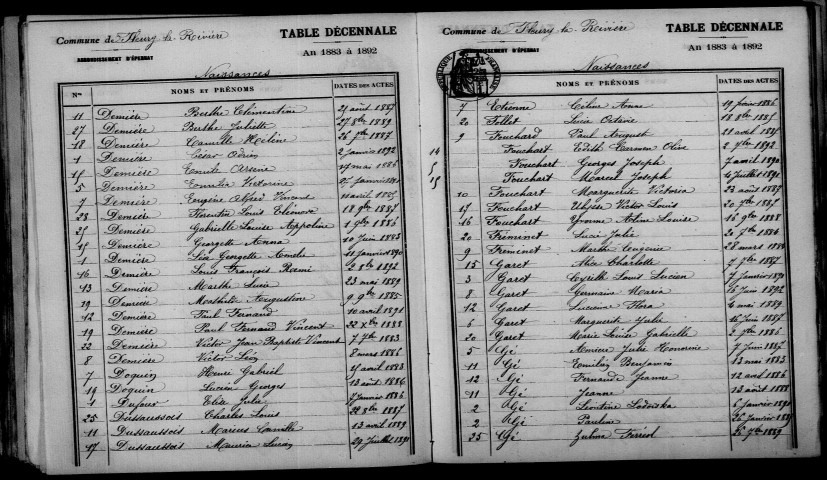 Commune de Fleury la Rivière
ARRONDISSEMENT D'ÉPERNAY
TABLE DÉCENNALE
An 1883 à 1892
Naissances
Nos NOMS ET PRÉNOMS DATES DES ACTES
11 Demière Berthe Clémentine 21 août 1887
27 Demière Berthe Juliette 27 8bre 1889
18 Demière Camille Hélène 26 7bre 1887
1 Demière César 2 janvier 1892
15 Demière Emile Arsène
5 Demière Victorine
7 Demière Eugène Alfred Vincent
28 Demière Florentin Louis 18 9bre 1887
25 Demière Gabrielle Louise Appoline 1 9bre 1886
15 Demière Georgette Anna 10 juin 1883
1 Demière Lia Georgette Amélie 11 janvier 1890
16 Demière Louis François Rémi 2 8bre 1892
13 Demière Marthe Lucie 23 mai 1889
19 Demière Mathilde Augustine 9 9bre 1885
12 Demière Paul Fernand 10 avril 1891
19 Demière Paul Fernand Vincent 22 Xbre 1888
22 Demière Victor Jean Baptiste Vincent 7 7bre 1883
8 Demière Victor Léon 8 mars 1886
7 Doquin Henri Gabriel 15 avril 1883
18 Doquin Lucien Georges 13 août 1886
1 Dufour Elise Julie 7 janvier 1886
25 Dussaussois Charles Louis 31 8bre 1887
11 Dussaussois Marius Camille 13 avril 1889
17 Dussaussois Maurice Lucien 29 juillet 1891
Commune de Fleury la Rivière
ARRONDISSEMENT D'ÉPERNAY
TABLE DÉCENNALE
An 1883 à 1892
Naissances
Nos NOMS ET PRÉNOMS DATES DES ACTES
7 Etienne Céline Anna 19 février 1886
20 Fillet Lucie Octavie 18 8bre 1885
9 Fouchard Paul August 21 avril 1887
14 Fouchart Edith Carmen Olive 2 7bre 1892
5 Fouchart Georges Joseph 7 avril 1890
15 Fouchart Marcel Joseph 4 juillet 1891
10 Fouchart Marguerite Victoria 23 août 1887
17 Fouchart Ulysse Victor Louis 20 7bre 1887
16 Fouchart Yvonne Arline Louise 16 9bre 1888
20 Fréminet Luci Julie 20 7bre 1886
9 Fréminet Marthe Eugénie 28 mars 1884
15 Garet Alice Charlotte 7 7bre 1887
3 Garet Cyrille Louis Lucien 7 janvier
8 Garet Germaine Maria 6 juin 1892
12 Garet Lucienne Flora 4 mai 1889
6 Garet Marguerite Julie 16 juin 1887
20 Garet Marie Louise Gabrielle 2 7bre 1886
5 Gé Julie Honorine 7 juin 1887
11 Gé Emilien Benjamin 13 mai 1883
12 Gé Fernande Jeanne 12 avril 1886
11 Gé Jeanne 13 août 1888
2 Gé Léontine Lodoïska 6 janvier
2 Gé Pauline 26 janvier
25 Gé Zulma 26 7bre 1889